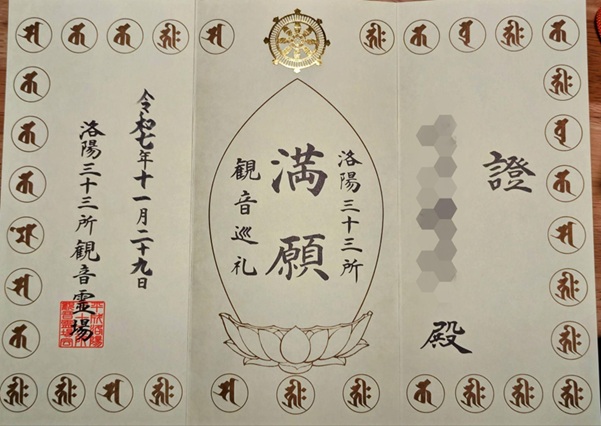 證
殿
洛陽三十三所
満願
観音巡礼
令和七年十一月二十九日
洛陽三十三所観音霊場